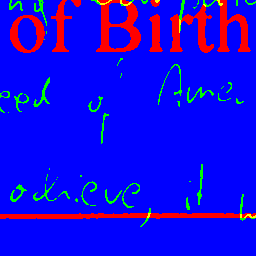 of Birth
eed of Amer
achieve, it